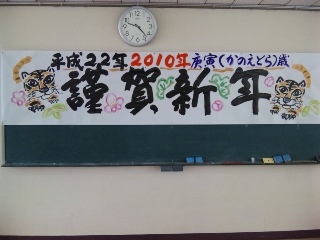 平成22年2010年庚寅(かのえとら)歳
謹賀新年